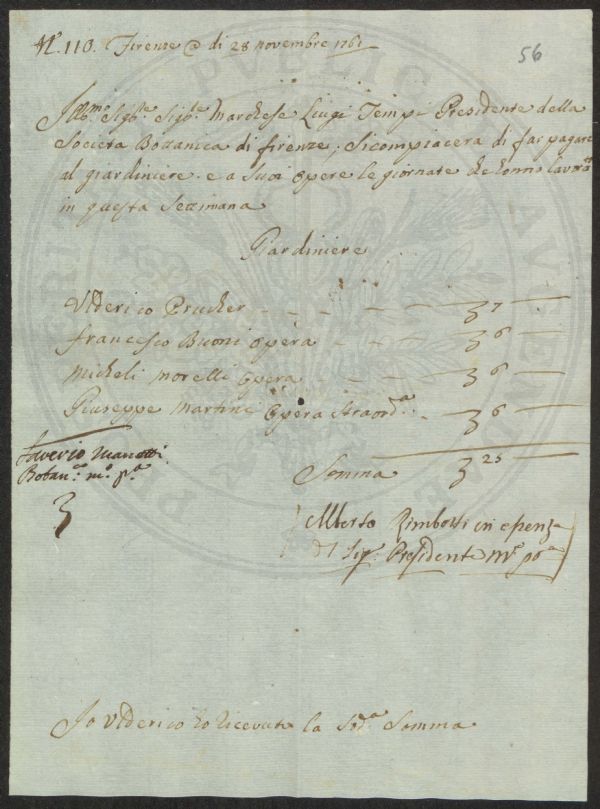 N.° 110. Firenze @ di 28 novembre 1761
56
Ill.mo Sig.re Sig.re Marchese Luigi Tempi Presidente della
Società Bottanica di firenze, Sicompiacera di far pagare
al giardiniere e a Suoi Opere le giornate che hanno lavora
in questa Settimana
Giardiniere
Viderico Prucker - - - - 3 7
francesco Buoni Opera - - - 3 6
Micheli Morelli Opera - - - 3 6
Giuseppe Martini Opera Straord.a - 3 6
Saverio Manetti
Botan.co m.o p.a
3
Somma 3 25
Alberto Rimbotti in
Sig.r Presidente M.o pp.a
Io Viderico ho Ricevuto la Sod.a Somma
PUBLICAE
AUGENDAE